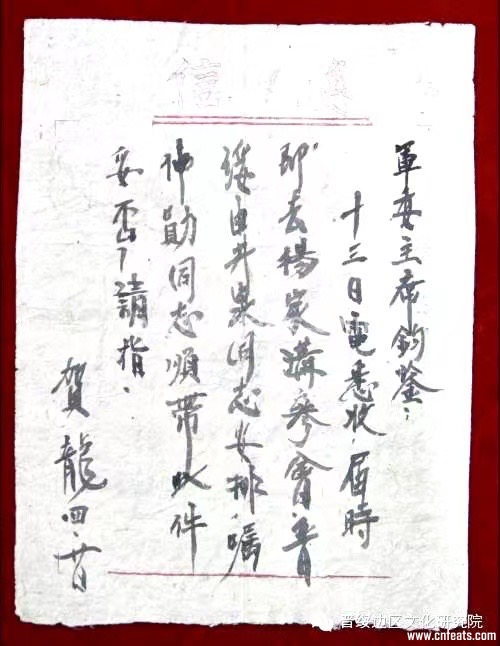 信
軍委主席鈞鑒：
十三日電悉收，屆時
即去楊家溝參會，晉
綏由井泉同志安排，囑
仲勛同志順帶此件
妥否？請指，
賀龍四·廿日
晋绥边区文化研究院
www.cnfeats.com